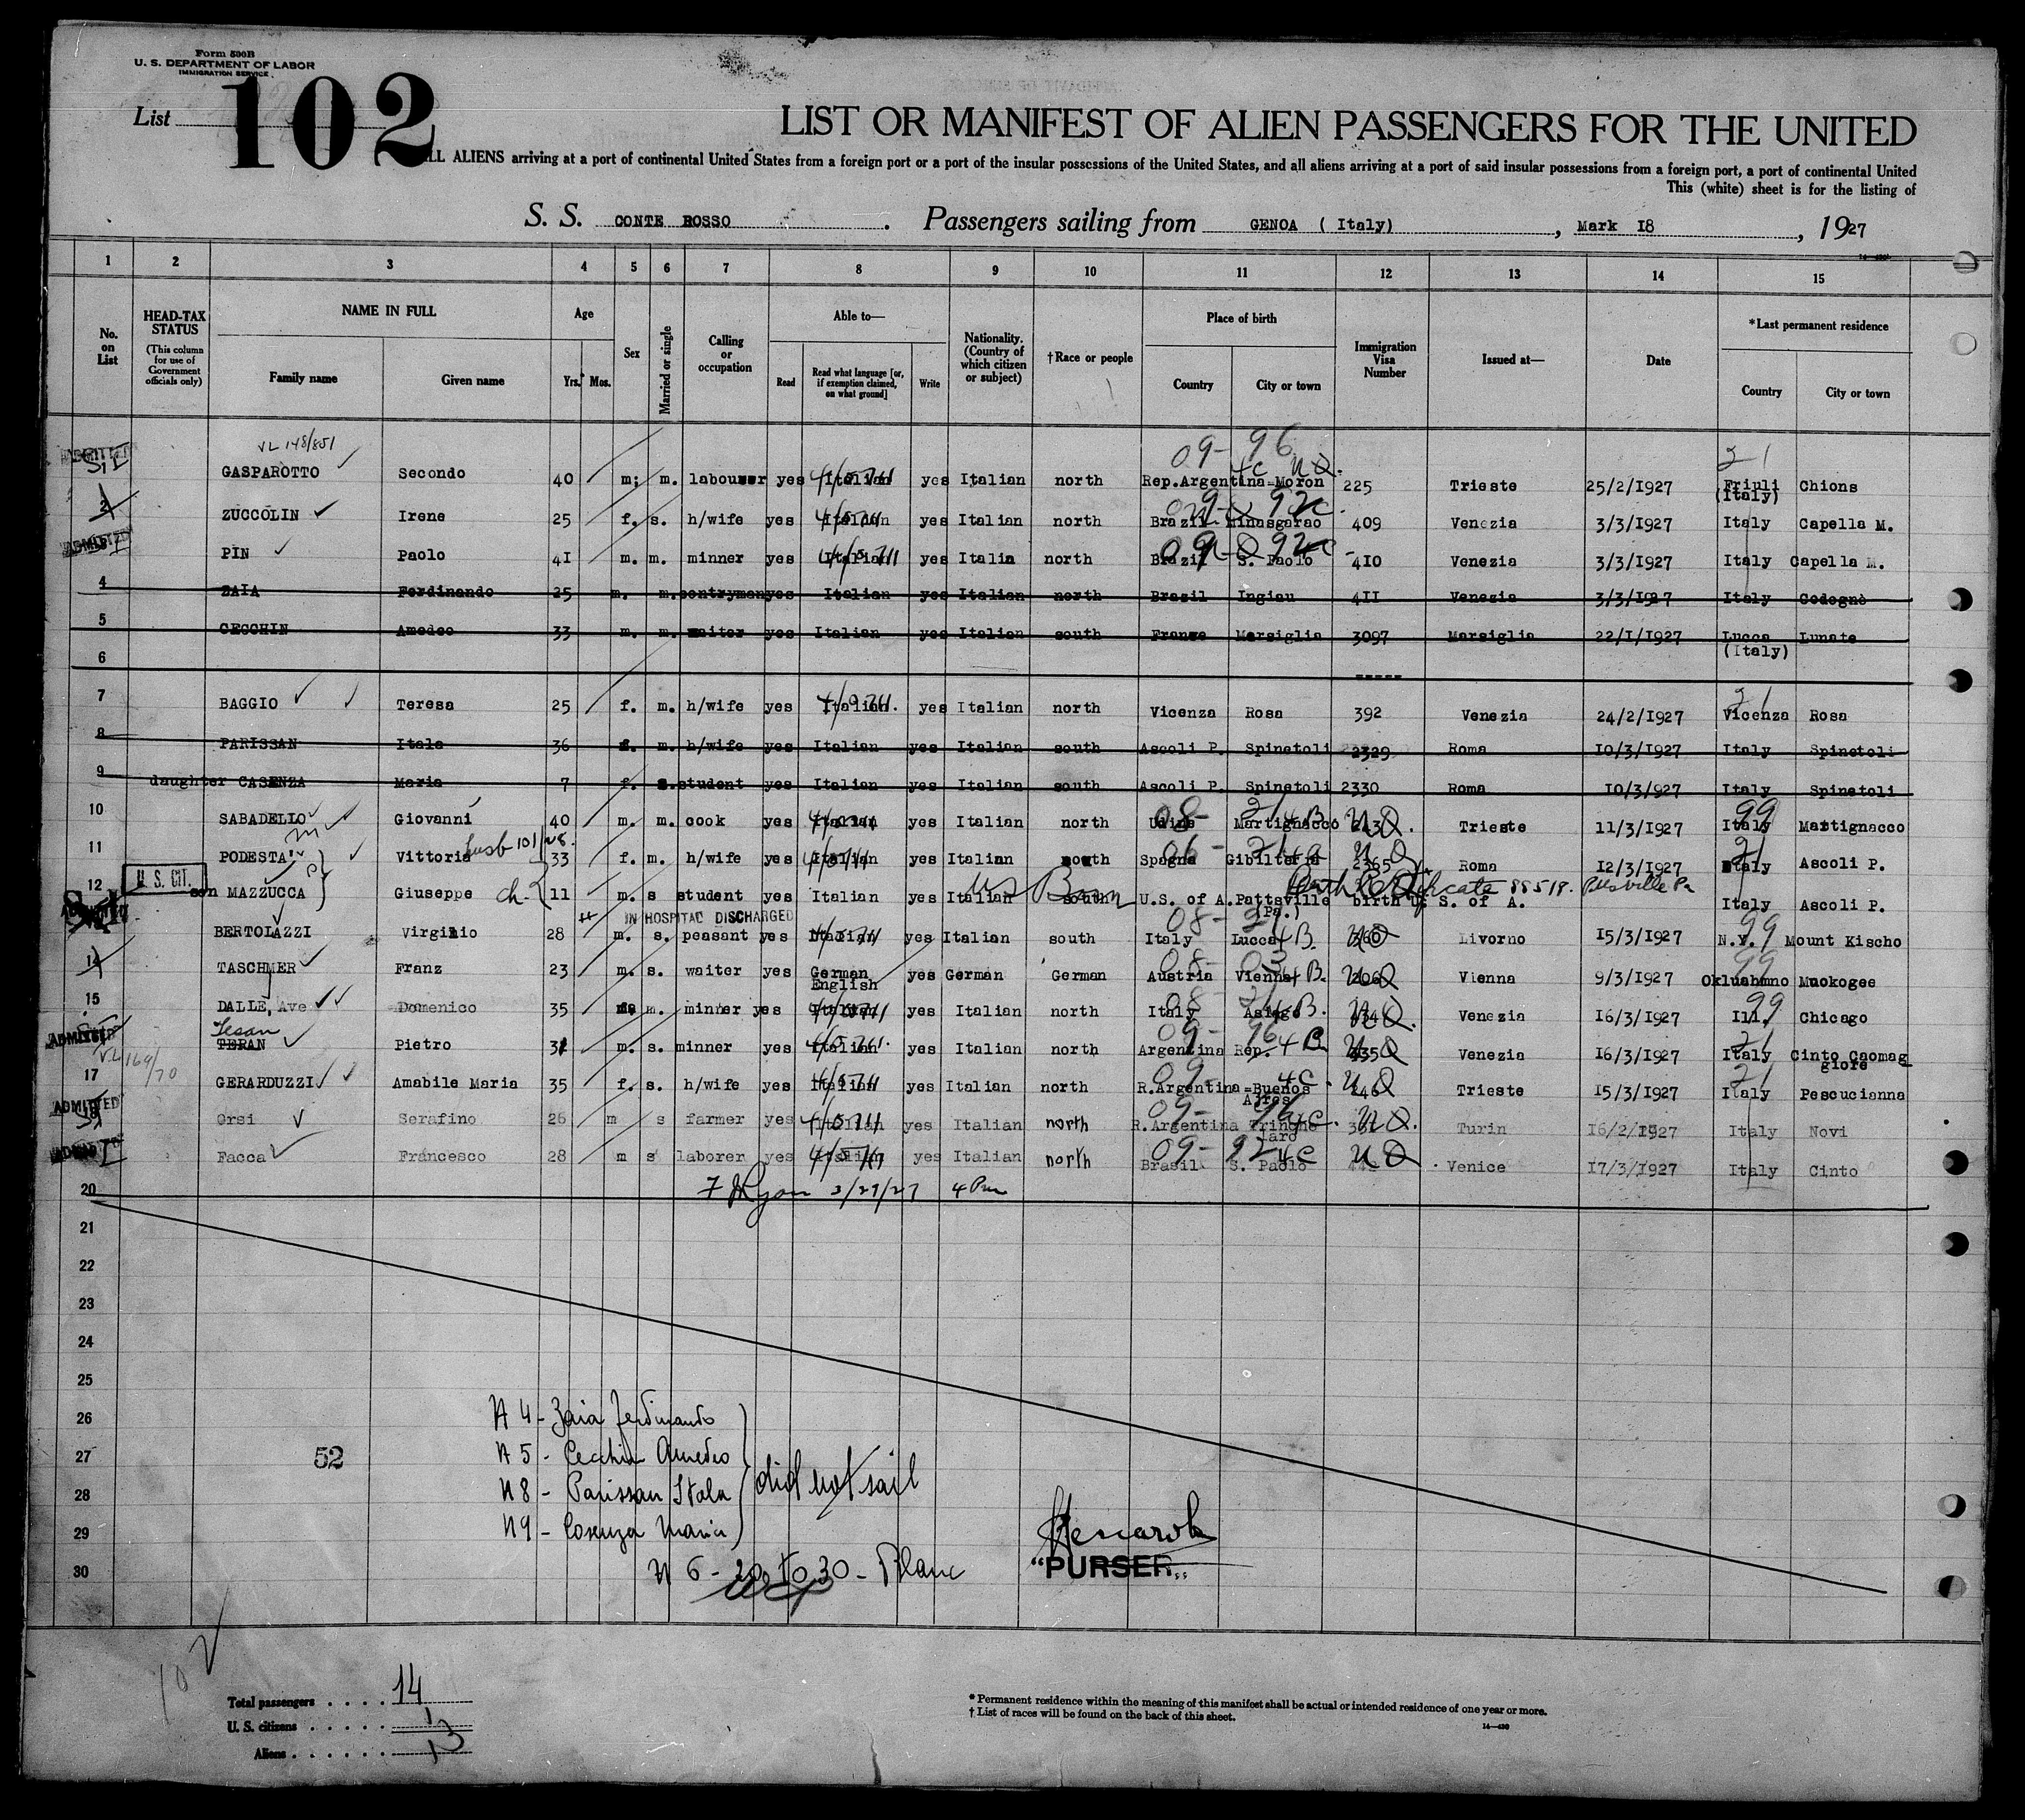 Form 500B
U. S. DEPARTMENT OF LABOR
IMMIGRATION SERVICE
List 102
LIST OR MANIFEST OF ALIEN PASSENGERS FOR THE UNITED
ALL ALIENS arriving at a port of continental United States from a foreign port or a port of the insular possessions of the United States, and all aliens arriving at a port of said insular possessions from a foreign port, a port of continental United
This (white) sheet is for the listing of
S. S. CONTE ROSSO. Passengers sailing from GENOA ( Italy) , Mark 18 , 1927
1 2 3 4 5 6 7 8 9 10 11 12 13 14 15
No. on List
HEAD-TAX STATUS
(This column for use of Government officials only)
NAME IN FULL
Family name Given name
Age
Yrs. Mos.
Sex
Married or single
Calling or occupation
Able to—
Read Read what language [or, if exemption claimed, on what ground] Write
Nationality. (Country of which citizen or subject)
†Race or people
Place of birth
Country City or town
Immigration Visa Number
Issued at—
Date
*Last permanent residence
Country City or town
VL 148/851 09- 96 21
ADMITTED GASPAROTTO Secondo 40 m; m. labourer yes Italian yes Italian north Rep.Argentina-Moron 225 Trieste 25/2/1927 Friuli (Italy) Chions
2 ZUCCOLIN Irene 25 f. s. h/wife yes Italian yes Italian north Brazil Minasgarao 409 Venezia 3/3/1927 Italy Capella M.
ADMITTED PIN Paolo 41 m. m. minner yes Italian yes Italia north Brazil S. Paolo 410 Venezia 3/3/1927 Italy Capella M.
4 ZAIA Ferdinando 25 m. m. contryman yes Italian yes Italian north Brazil Ingiau 411 Venezia 3/3/1927 Italy Codognè
5 CECCHIN Amedeo 33 m. m. waiter yes Italian yes Italian south France Marsiglia 3097 Marsiglia 22/1/1927 Lucca (Italy) Lunate
6 -----
7 BAGGIO Teresa 25 f. m. h/wife yes Italian yes Italian north Vicenza Rosa 392 Venezia 24/2/1927 Vicenza Rosa
8 PARISSAN Itala 36 f. m. h/wife yes Italian yes Italian south Ascoli P. Spinetoli 2329 Roma 10/3/1927 Italy Spinetoli
9 daughter CASENZA Maria 7 f. s. student yes Italian yes Italian south Ascoli P. Spinetoli 2330 Roma 10/3/927 Italy Spinetoli
10 SABADELLO Giovanni 40 m. m. cook yes Italian yes Italian north Udine Martignacco Trieste 11/3/1927 Italy Martignacco
11 PODESTA' Vittoria 33 f. m. h/wife yes Italian yes Italian south Spagna Gibilterra 2365 Roma 12/3/1927 Italy Ascoli P.
12 U. S. CIT. son MAZZUCCA Giuseppe ch. 11 m. s student yes Italian yes Italian US Born south U.S. of A. Pattsville (Pa.) birth U. S. of A. Birth Certificate 88518. Italy Ascoli P.
IN HOSPITAL DISCHARGED
BERTOLAZZI Virginio 28 m. s. peasant yes Italian yes Italian south Italy Lucca Livorno 15/3/1927 N.Y. Mount Kischo
14 TASCHMER Franz 23 m. s. waiter yes German English yes German German Austria Vienna Vienna 9/3/1927 Okluahmno Muokogee
15 DALLE, Ave Domenico 35 m. minner yes Italian yes Italian north Italy Asiago Venezia 16/3/1927 Ill. Chicago
Tesan
ADMITTED TERAN Pietro 31 m. s. minner yes Italian yes Italian north Argentina Rep. Venezia 16/3/1927 Italy Cinto Caomag giore
VL 169/70
17 GERARDUZZI Amabile Maria 35 f. s. h/wife yes Italian yes Italian north R.Argentina-Buenos Aires 246 Trieste 15/3/1927 Italy Pescucianna
ADMITTED Orsi Serafino 26 m s farmer yes Italian yes Italian north R.Argentina Turin 16/2/1927 Italy Novi
Facca Francesco 28 m s laborer yes Italian yes Italian north Brasil S. Paolo Venice 17/3/1927 Italy Cinto
20 F Ryan 3/27/27 4 Pm
21
22
23
24
25
26 N 4 - Zaia Ferdinando
27 52 N 5 - Cecchin Amedeo
28 N 8 - Parissan Itala did not sail
29 N 9 - Cosenza Maria
30 N 6 - 20 to 30 - Blanc "PURSER"
Total passengers . . . . 14
U. S. citizens . . . . . 1
Aliens . . . . . . 13
* Permanent residence within the meaning of this manifest shall be actual or intended residence of one year or more.
† List of races will be found on the back of this sheet.